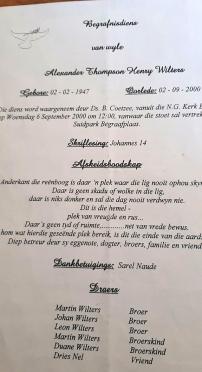 Begrafnisdiens
van wyle
Alexander Thompson Henry Wilters
Gebore: 02 - 02 - 1947 Oorlede: 02 - 09 - 2000
Die diens word waargeneem deur Ds. B. Coetzee, vanuit die N.G. Kerk
op Woensdag 6 September 2000 om 12:00, vanwaar die stoet sal vertrek
Suidpark Begraafplaas.
Skriflesing: Johannes 14
Afskeidsboodskap
Anderkant die reënboog is daar 'n plek waar die lig nooit ophou
Daar is geen skadu of wolke in die lig,
daar is niks donker en sal die dag nooit verdwyn nie.
Dit is die hemel -
plek van vreugde en rus...
Daar's geen tyd of ruimte,............net van vrede bewus.
hom wat hierdie geseënde plek bereik, is dit die einde van die
Diep betreur deur sy eggenote, dogter, broers, familie en
Dankbetuigings: Sarel Naude
Draers
Martin Wilters Broer
Johan Wilters Broer
Leon Wilters Broer
Martin Wilters Broerskind
Duane Wilters Broerskind
Dries Nel Vriend